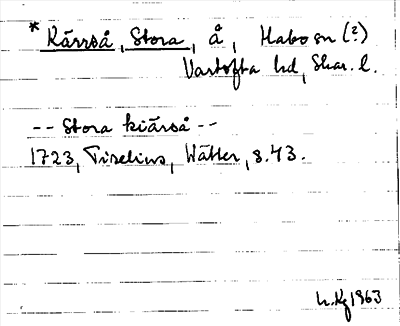 * Kärrså, Stora, å, Habo sn (?)
Vartofta hd, Skar. l.
-- Stora kiärså --
1723, Tiselius, Wätter, s. 43.
1963